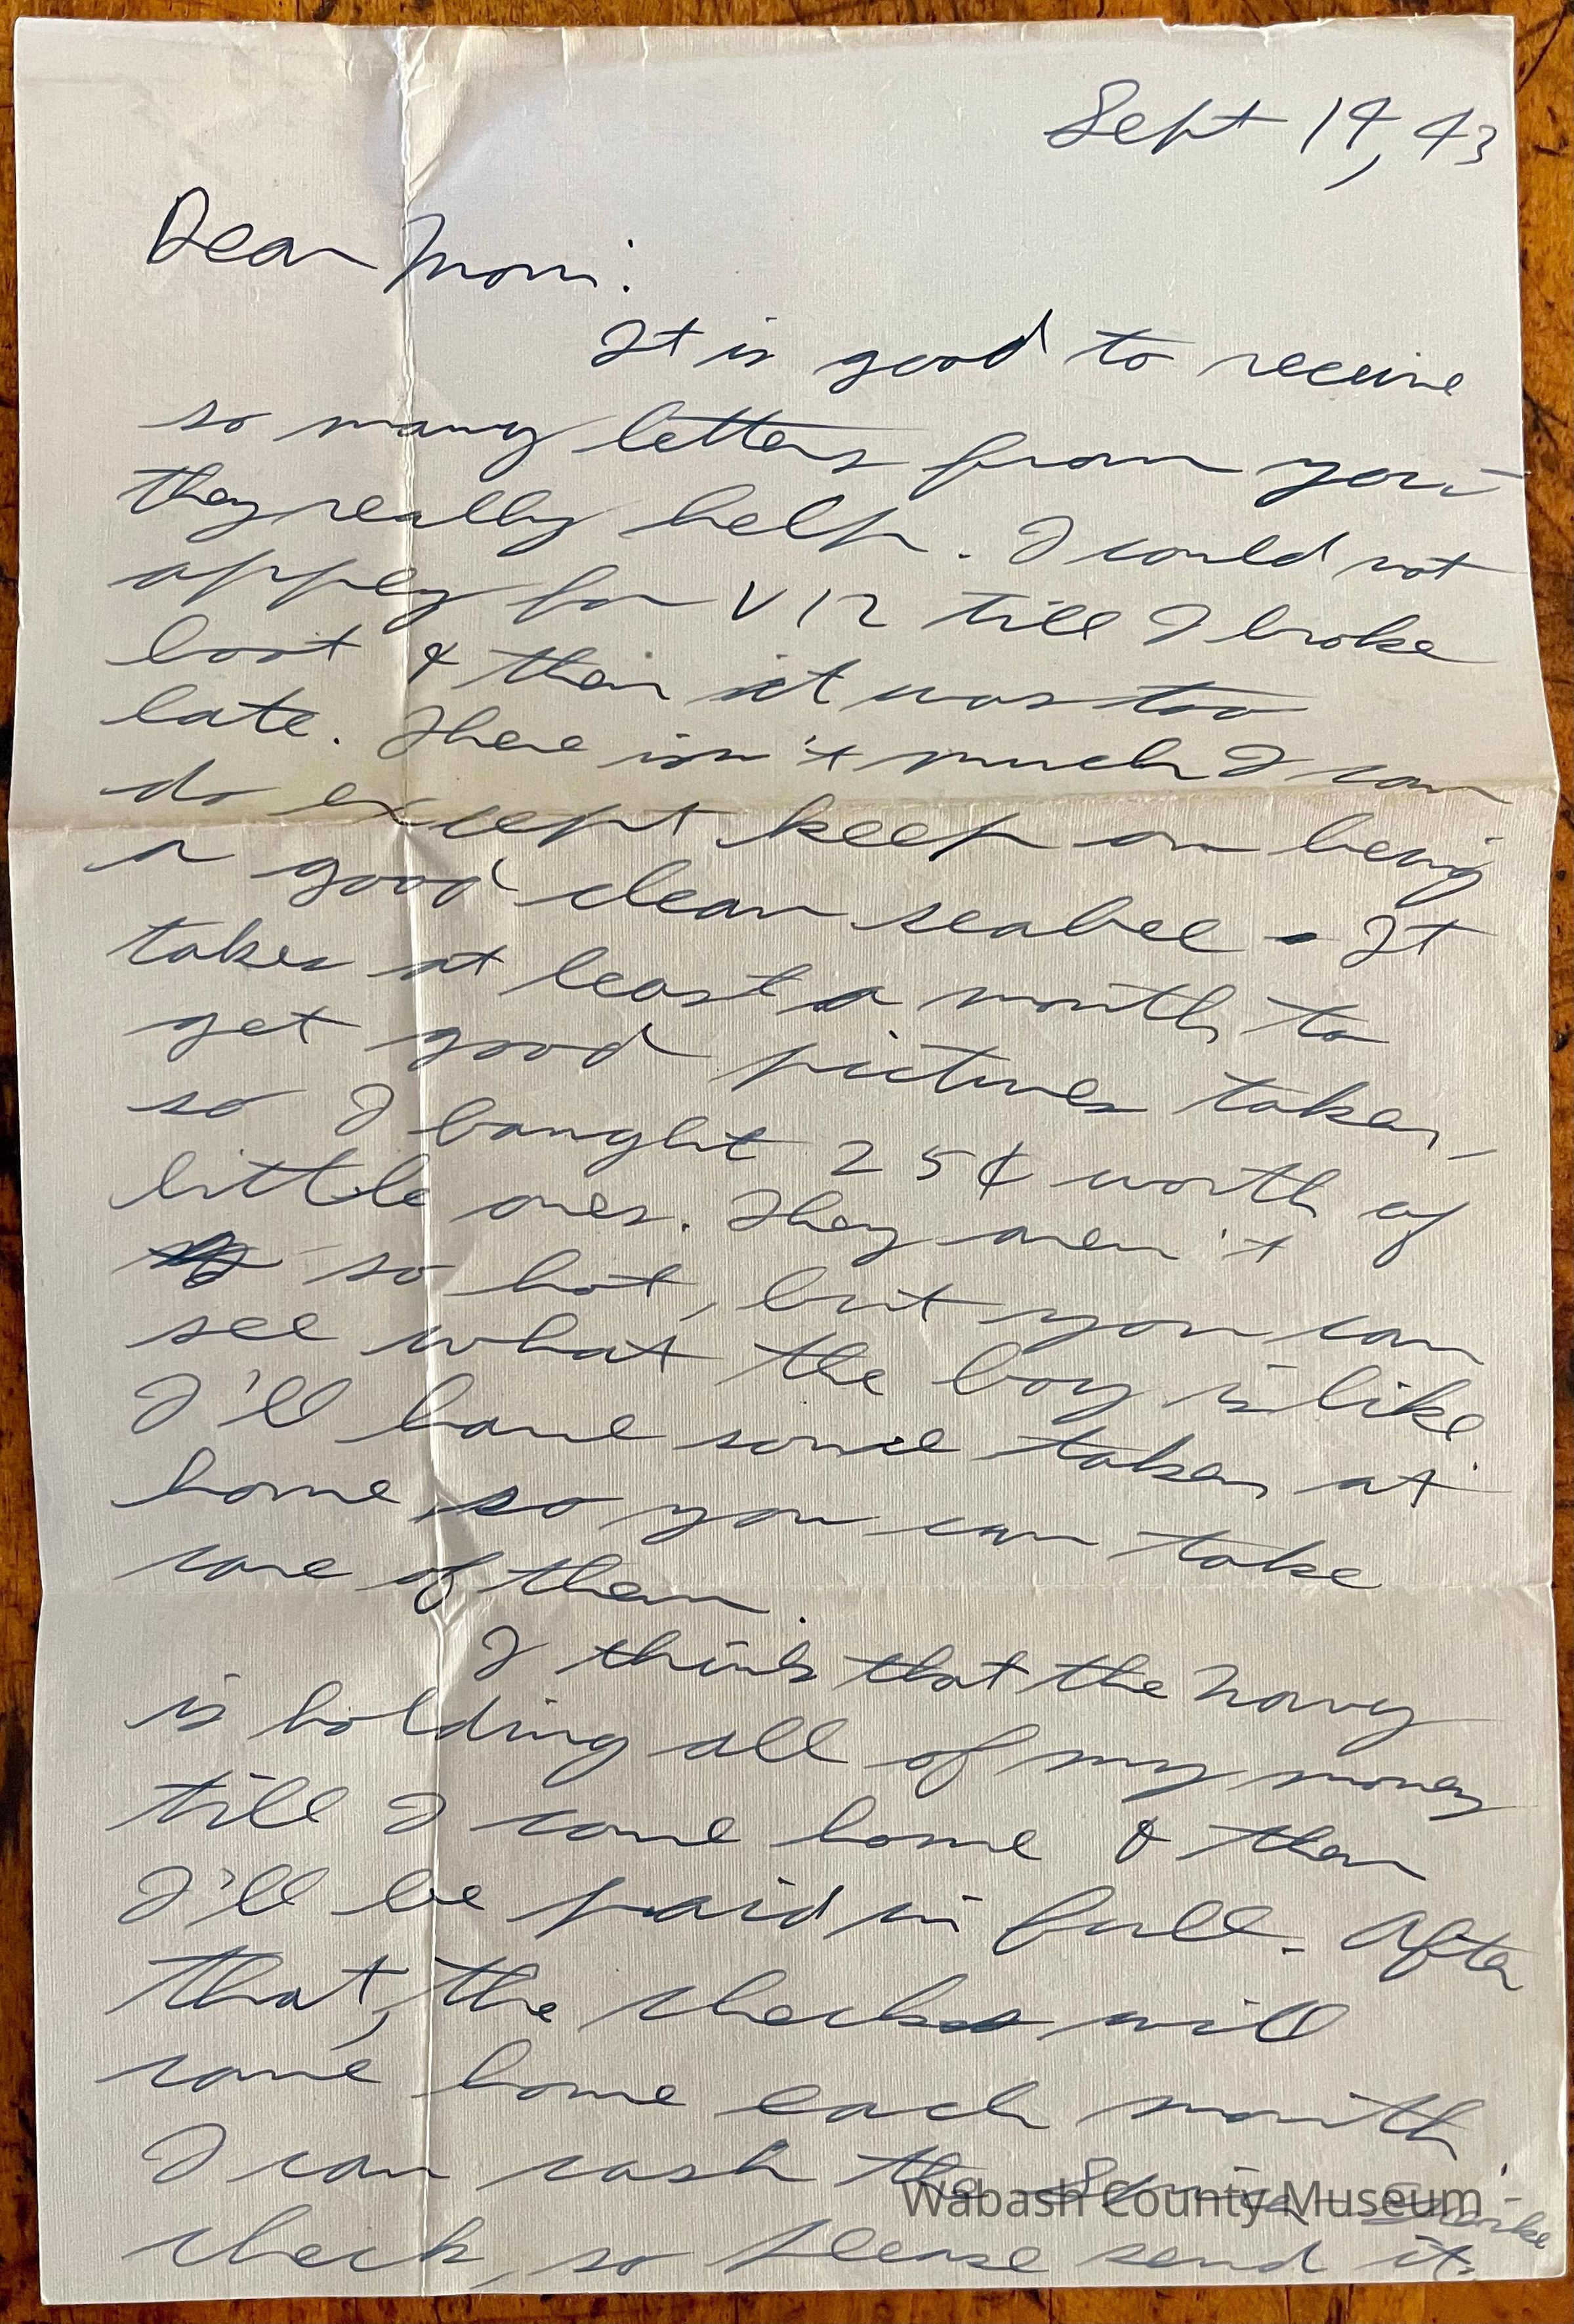 Sept 14, 43
Dear Mom:
It is good to receive
so many letters from you -
they really help. I could not
apply for V12 till I broke
boot & then it was too
late. There isn't much I can
do except keep on being
a good clean seabee - It
takes at least a month to
get good pictures taken,
so I bought 25¢ worth of
little ones. They aren't
so hot, but you can
see what the boy is like.
I'll have some taken at
home, so you can take
care of them.
I think that the Navy
is holding all of my money
till I come home & then
I'll be paid in full. After
that, the checks will
come home each month.
I can cash the
check, so please send it.
Wabash County Museum